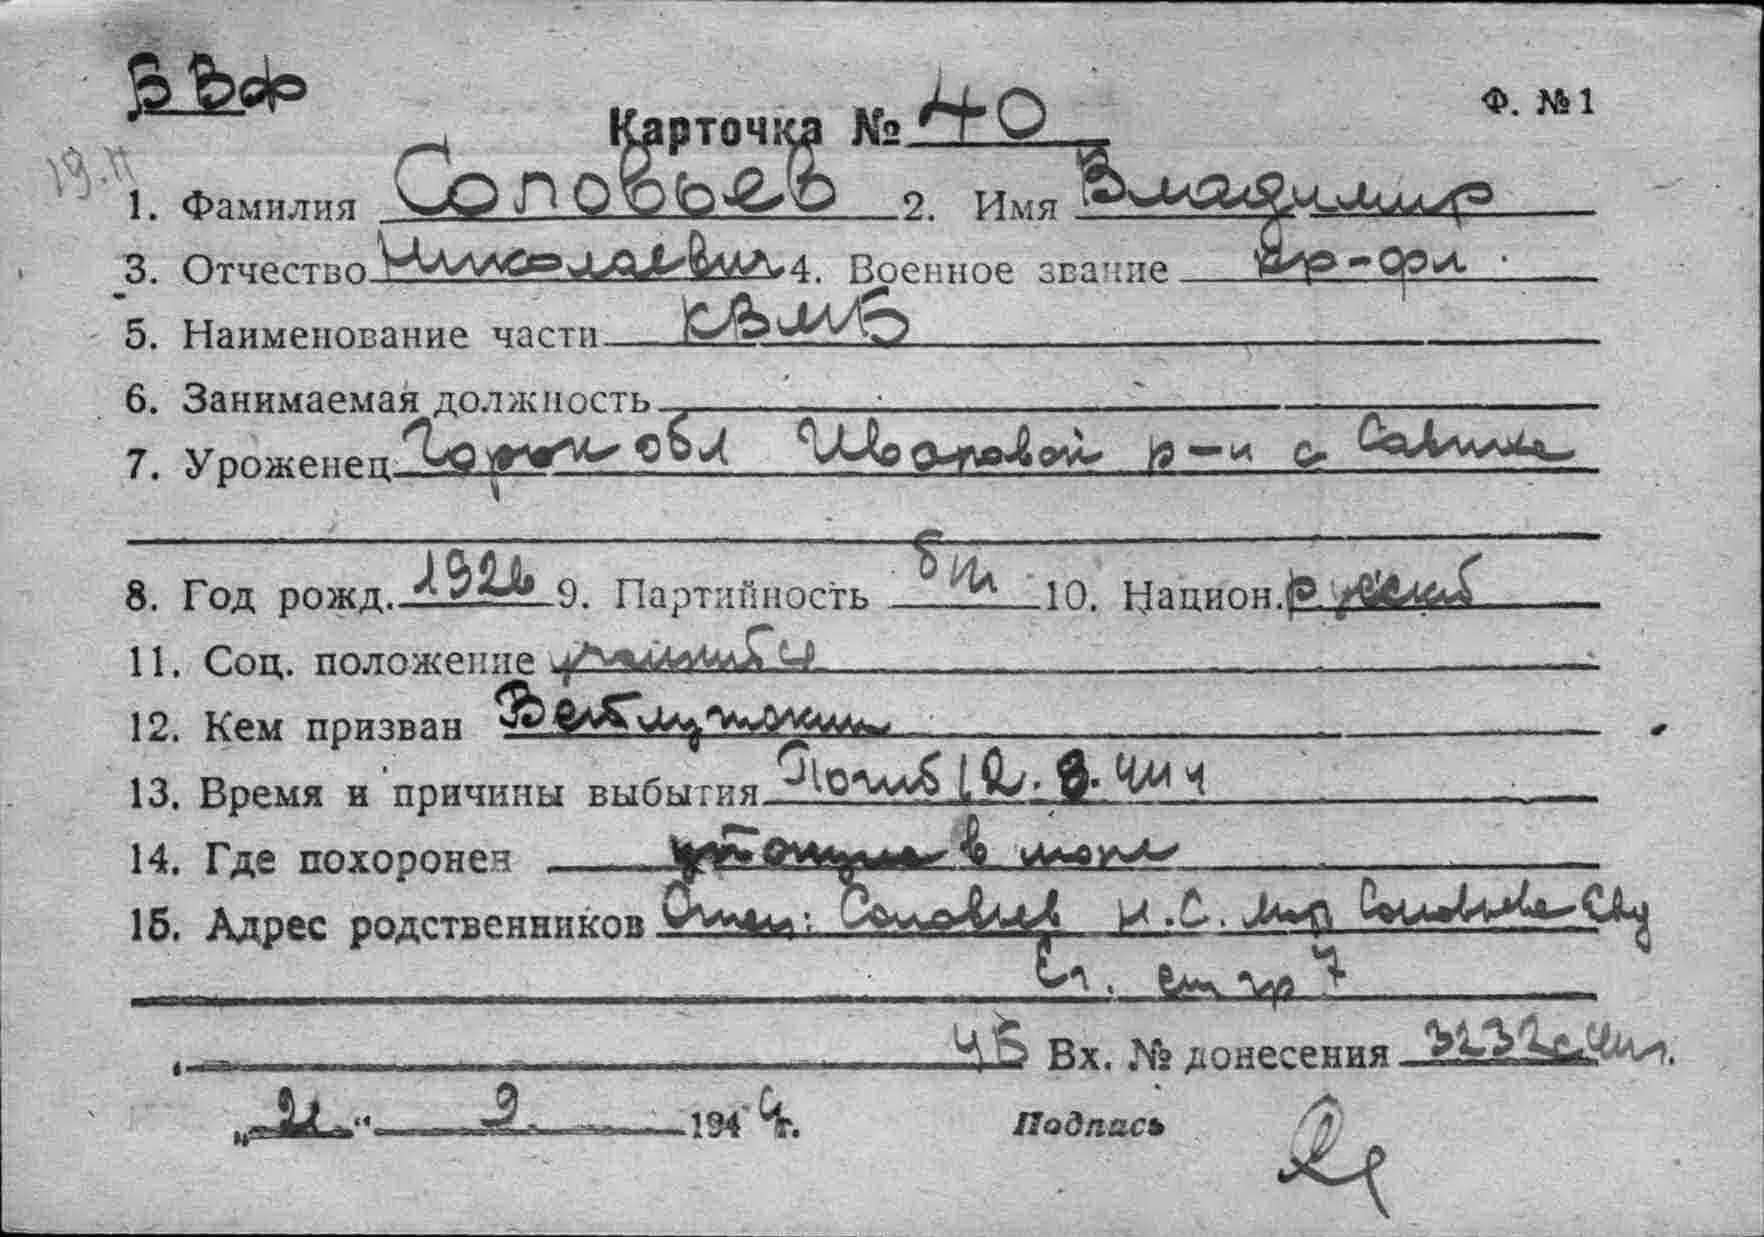 ВВф
Ф. №1
Карточка № 40
19.11
1. Фамилия Соловьев 2. Имя Владимир
3. Отчество Николаевич 4. Военное звание кр-фл
5. Наименование части КВМБ
6. Занимаемая должность
7. Уроженец Горьк обл р-н с
8. Год рожд. 1926 9. Партийность б/п 10. Национ. русский
11. Соц. положение учащийся
12. Кем призван
13. Время и причины выбытия Погиб 12.8.44 г
14. Где похоронен в море
15. Адрес родственников Отец: Соловьев Н.С. Соловьева Евд
Ег. 7
Вх. № донесения 3232с
"21" 9 1944г. Подпись